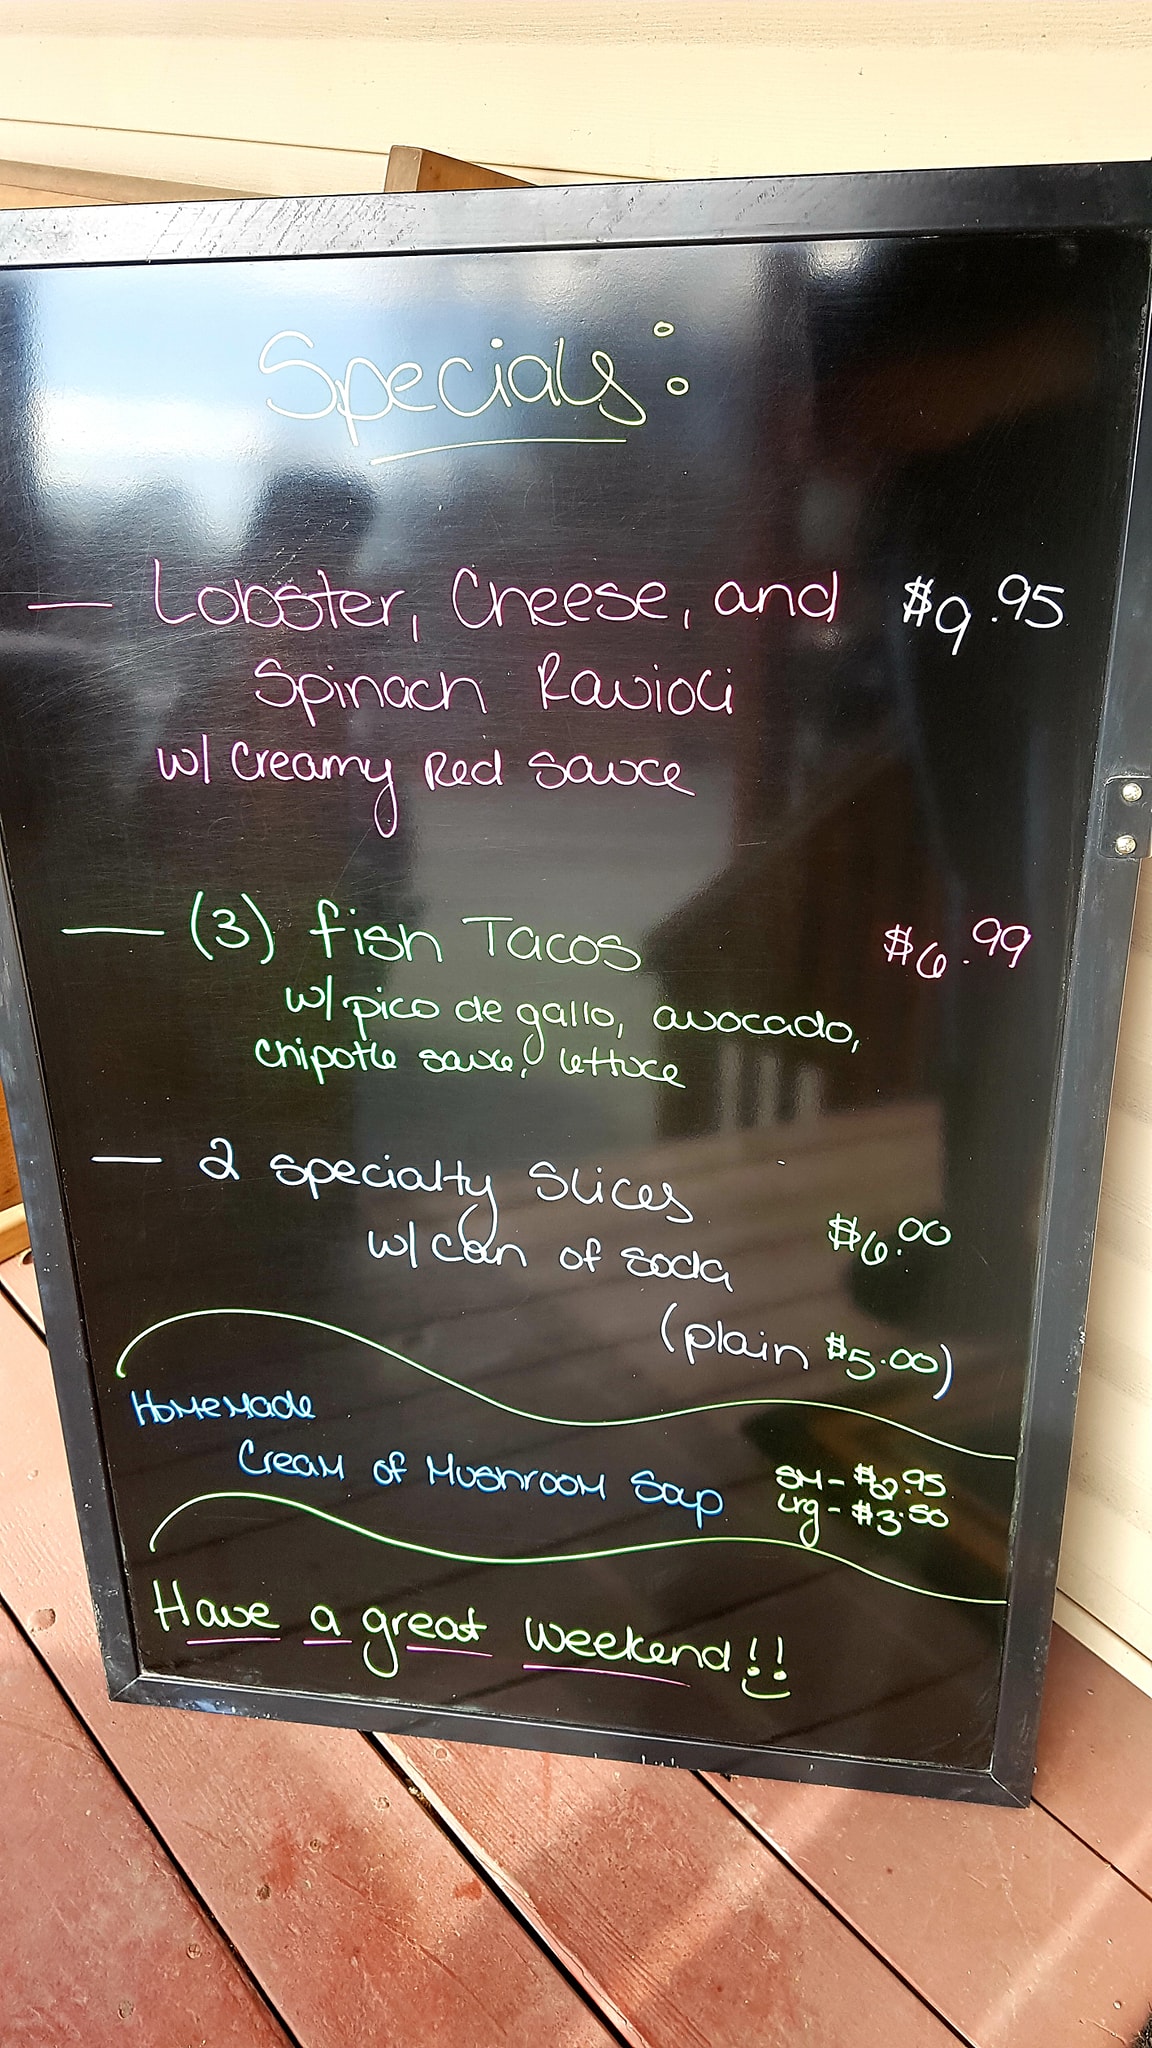 Specials:
— Lobster, Cheese, and $9.95
Spinach Ravioli
w/ Creamy Red Sauce
— (3) fish Tacos $6.99
w/ pico de gallo, avocado,
chipotle sauce, lettuce
— 2 specialty Slices
w/ can of soda $6.00
(plain $5.00)
Homemade
Cream of Mushroom Soup SM - $2.95
Lrg - $3.50
Have a great weekend!!